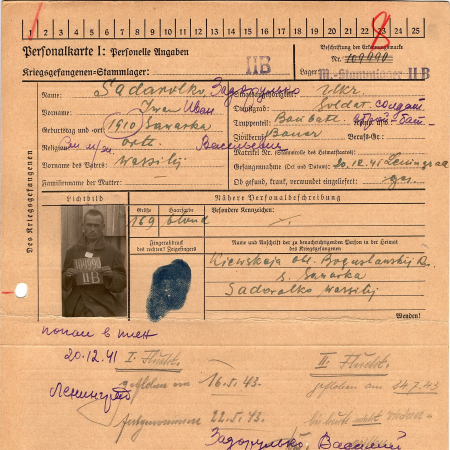 1 2 3 4 5 6 7 8 9 10 11 12 13 14 15 16 17 18 19 20 21 22 23 24 25
8
Personalkarte I: Personelle Angaben
Beschriftung der Erkennungsmarke
Nr. 109090
Kriegsgefangenen-Stammlager: II B
Lager: M.-Stammlager II B
Des Kriegsgefangenen
Name: Sadorolko Задорулько
Staatsangehörigkeit: Ukr.
Vorname: Iwan Иван
Dienstgrad: Soldat солдат
Geburtstag und -ort: 1910 Sawarka
Truppenteil: Baubatl.
Religion: orth.
Zivilberuf: Bauer Berufs-Gr.:
Vorname des Vaters: Wassilij Васильевич
Matrikel Nr. (Stammrolle des Heimatstaates):
Gefangennahme (Ort und Datum): 20.12.41 Leningrad
Familienname der Mutter: —
Ob gesund, krank, verwundet eingeliefert: ges.
Lichtbild
Nähere Personalbeschreibung
Größe Haarfarbe Besondere Kennzeichen:
169 blond
II B
Fingerabdruck
des rechten Zeigefingers
Name und Anschrift der zu benachrichtigenden Person in der Heimat
des Kriegsgefangenen
Kiewskaja obl. Boguslawskij R.
s. Sawarka
Sadorolko Wassilij
Wenden!
попал в плен
20.12.41
Ленинград
I. Flucht.
geflohen am 16.5.43.
festgenommen 22.5.43.
II. Flucht.
geflohen am 24.7.43
Задорулько, Василий